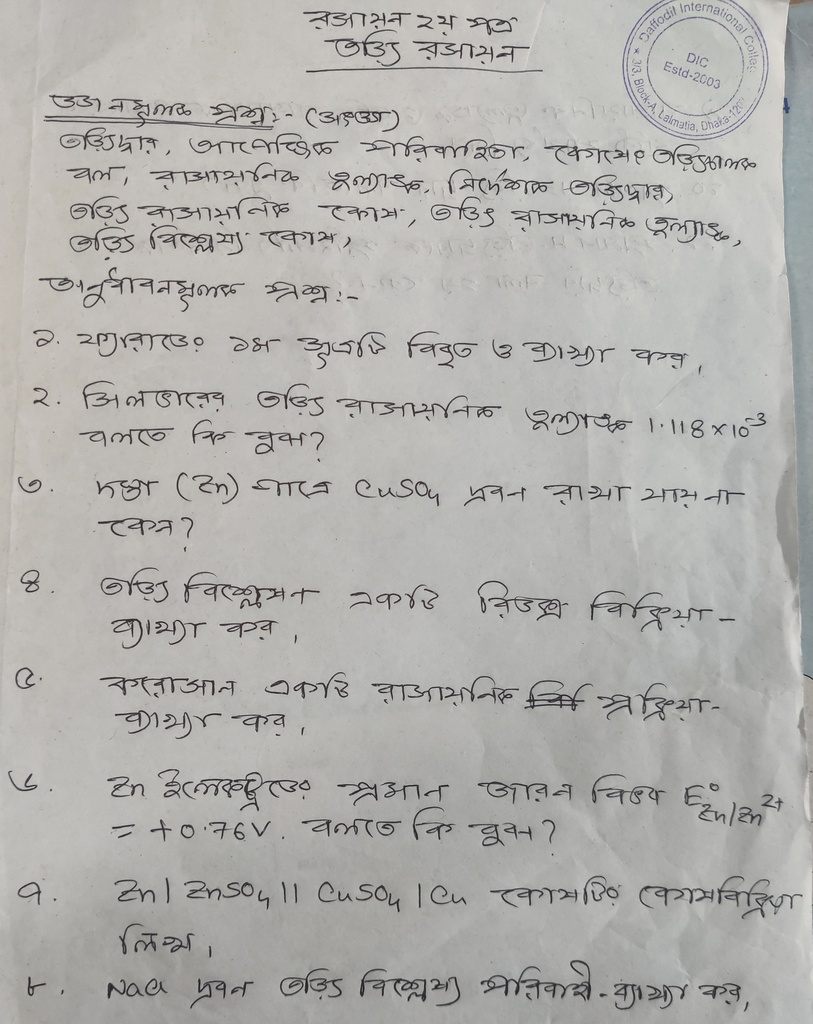 রসায়ন ২য় পত্র
তড়িৎ রসায়ন
Daffodil International College
DIC
Estd-2003
3/3, Block-A, Lalmatia, Dhaka-1207
জ্ঞানমূলক প্রশ্ন:- (সংজ্ঞা)
তড়িৎদ্বার, আপেক্ষিক পরিবাহিতা, কোষের তড়িচ্চালক
বল, রাসায়নিক তুল্যাঙ্ক, নির্দেশক তড়িৎদ্বার,
তড়িৎ রাসায়নিক কোষ, তড়িৎ রাসায়নিক তুল্যাঙ্ক,
তড়িৎ বিশ্লেষ্য কোষ,
অনুধাবনমূলক প্রশ্ন:-
১. ফ্যারাডের ১ম সূত্রটি বিবৃত ও ব্যাখ্যা কর,
২. সিলভারের তড়িৎ রাসায়নিক তুল্যাঙ্ক 1.118×10⁻³
বলতে কি বুঝ?
৩. দস্তা (Zn) পাত্রে CuSO₄ দ্রবন রাখা যায়না
কেন?
৪. তড়িৎ বিশ্লেষণ একটি রিডক্স বিক্রিয়া-
ব্যাখ্যা কর,
৫. করোসান একটি রাসায়নিক প্রক্রিয়া-
ব্যাখ্যা কর,
৬. Zn ইলেকট্রডের প্রমান জারন বিভব E°Zn/Zn²⁺
= +0.76V. বলতে কি বুঝ?
৭. Zn | ZnSO₄ || CuSO₄ | Cu কোষটির কোষবিক্রিয়া
লিখ,
৮. NaCl দ্রবন তড়িৎ বিশ্লেষ্য পরিবাহী-ব্যাখ্যা কর,